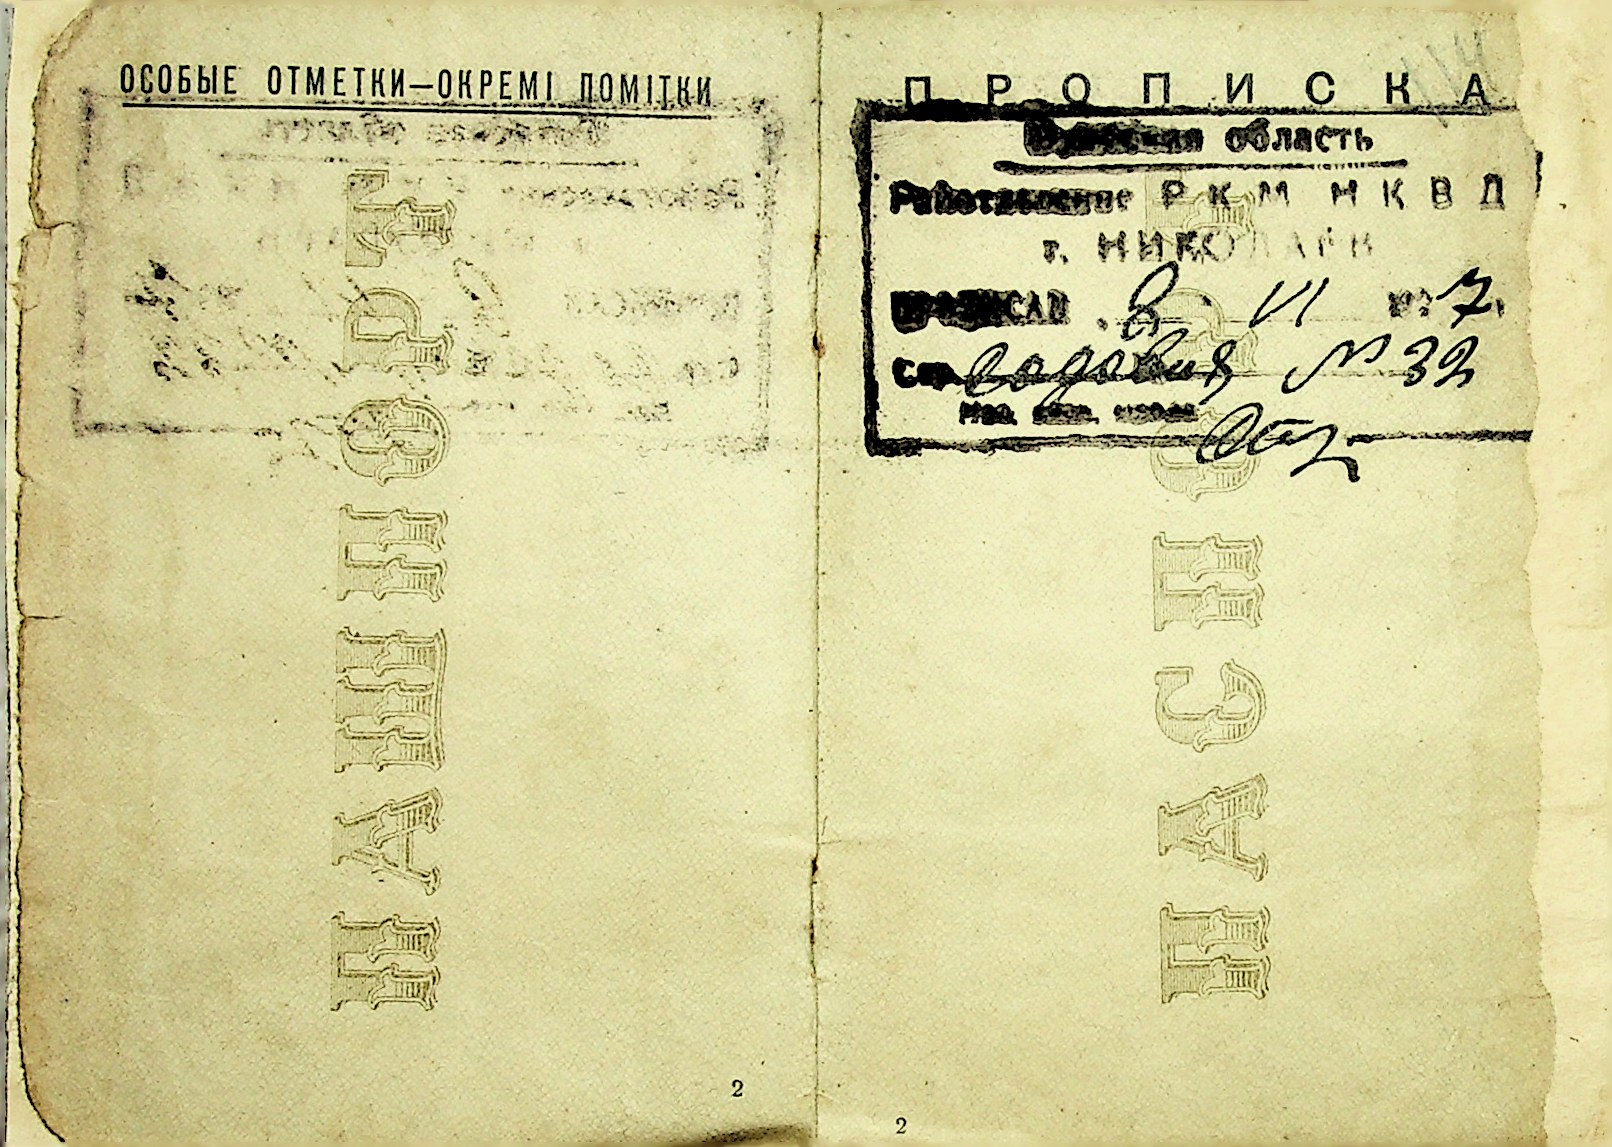 ОСОБЫЕ ОТМЕТКИ—ОКРЕМІ ПОМІТКИ
ПАШПОРТ
2
ПРОПИСКА
область
Райотделение РКМ НКВД
г. НИКОЛАЕВ
ПРОПИСАН 8 VI 7
Садовая № 32
ПАСПОРТ
2